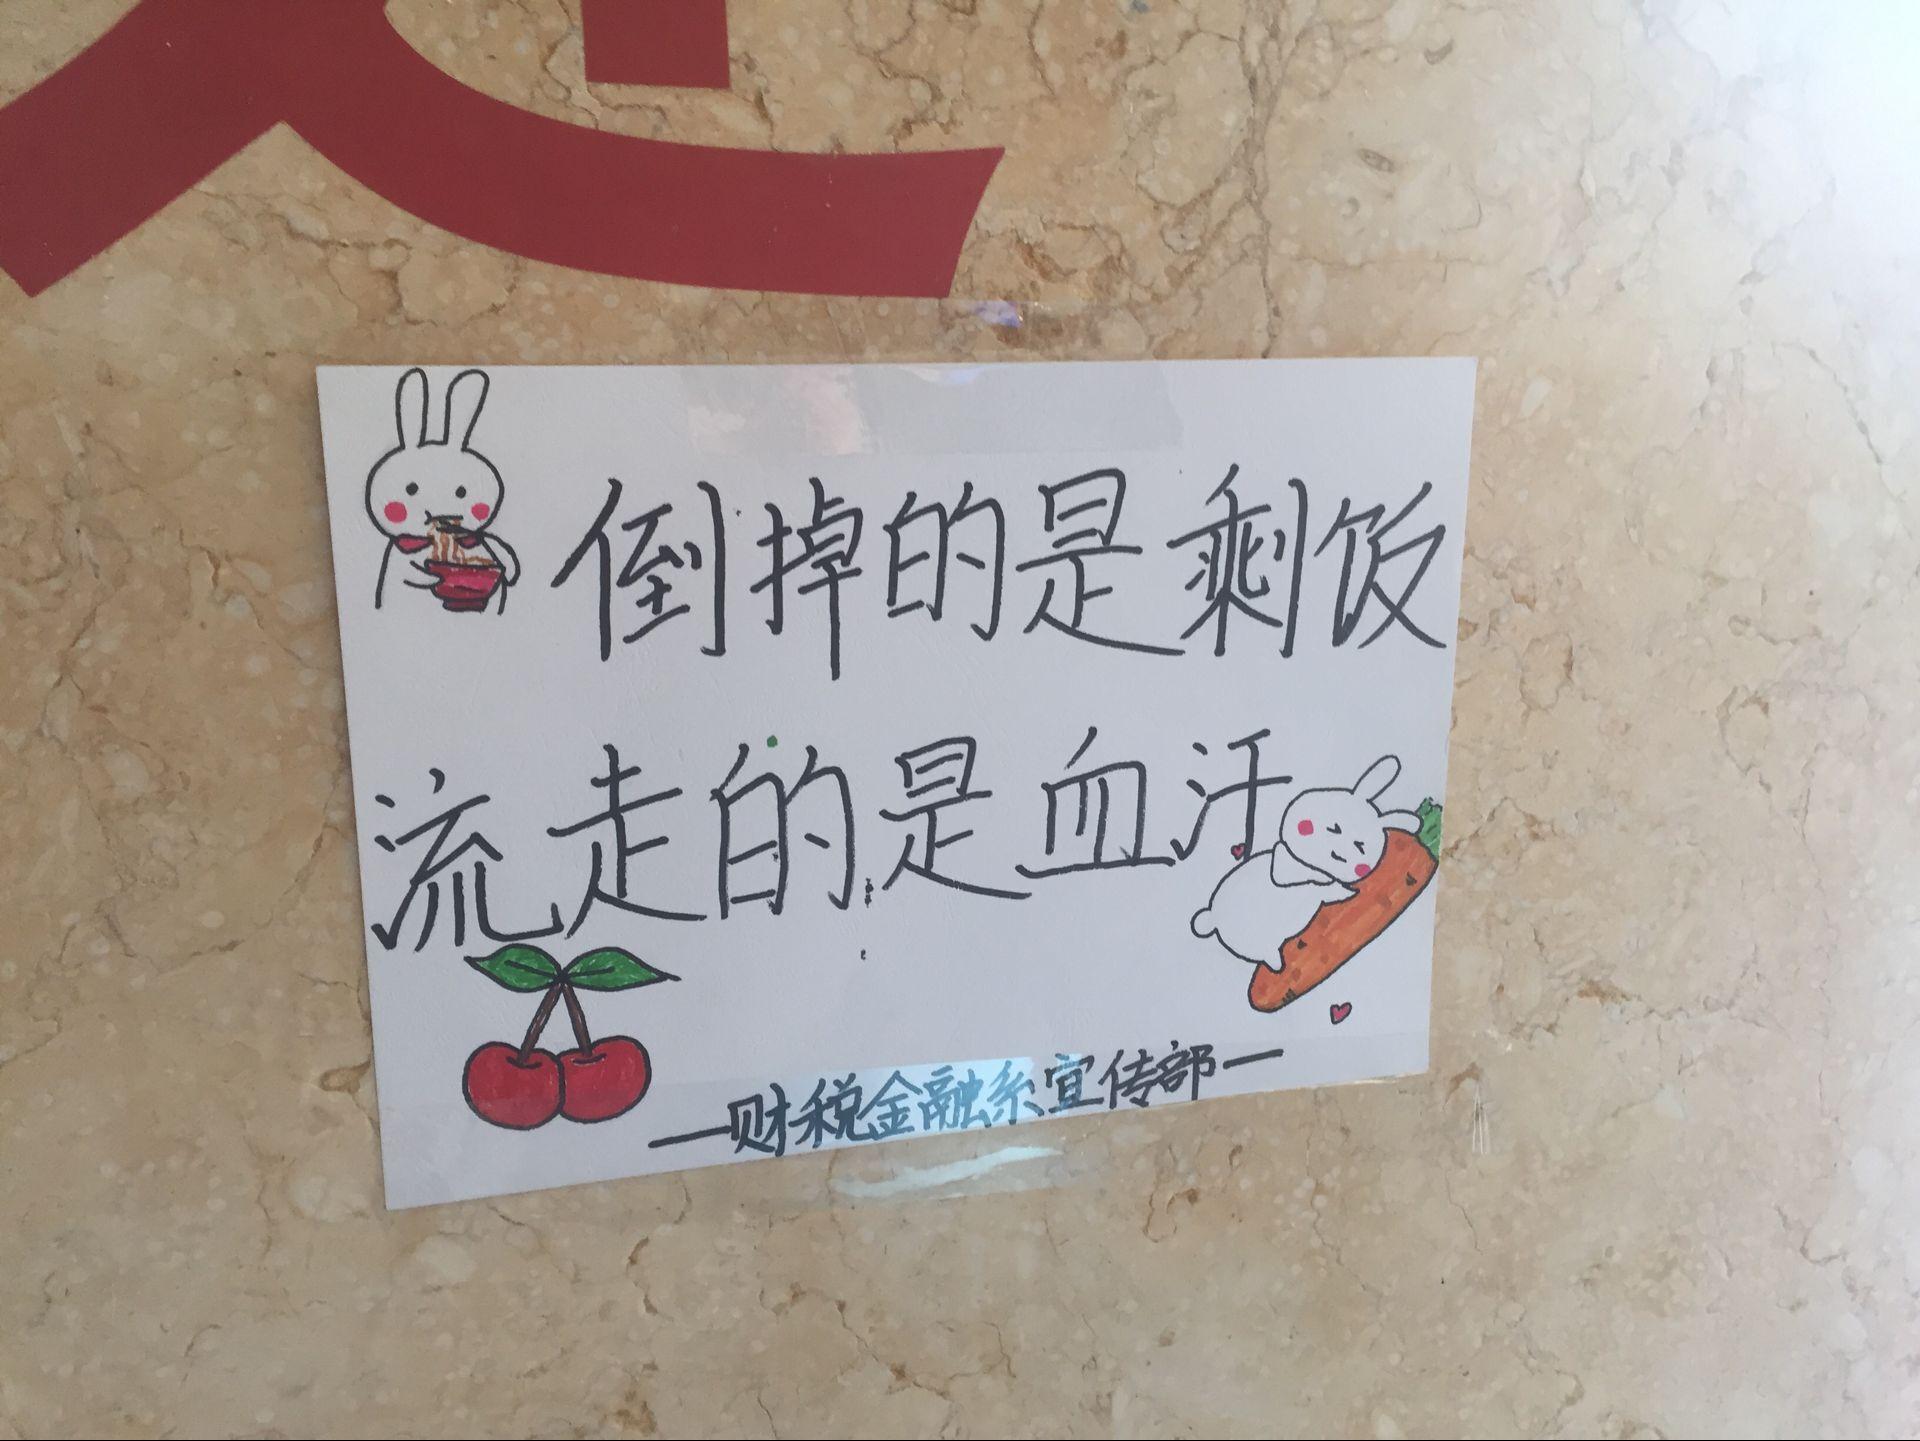 倒掉的是剩饭
流走的是血汗
—财税金融系宣传部—